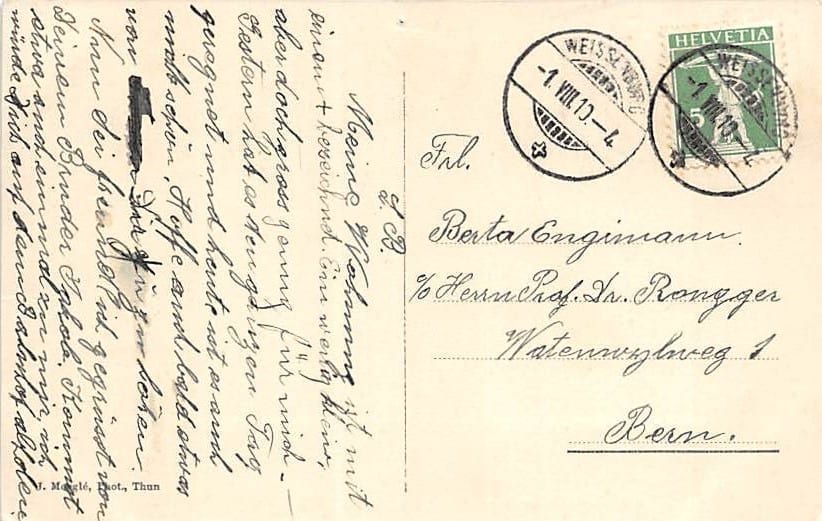 L. B.
Meine Wohnung ist mit
einem + bezeichnet. Ein wenig klein,
aber doch gross genug für mich. —
Gestern hat es den ganzen Tag
geregnet und heute ist es auch
nicht schön. Hoffe auch bald etwas
von Dir zu hören.
Nun sei freundlich gegrüsst von
Deinem Bruder Jakob. Kommst
etwa auch einmal zu mir, ich
würde Dich auf dem Bahnhof abholen.
J. Moeglé, Phot., Thun
WEISSENBURG
-1.VIII.10-4
HELVETIA
5
WEISSENBURG
-1.VIII.10-4
Frl.
Berta Engimann.
c/o Herrn Prof. Dr. Rongger
Watenwylweg 1
Bern.